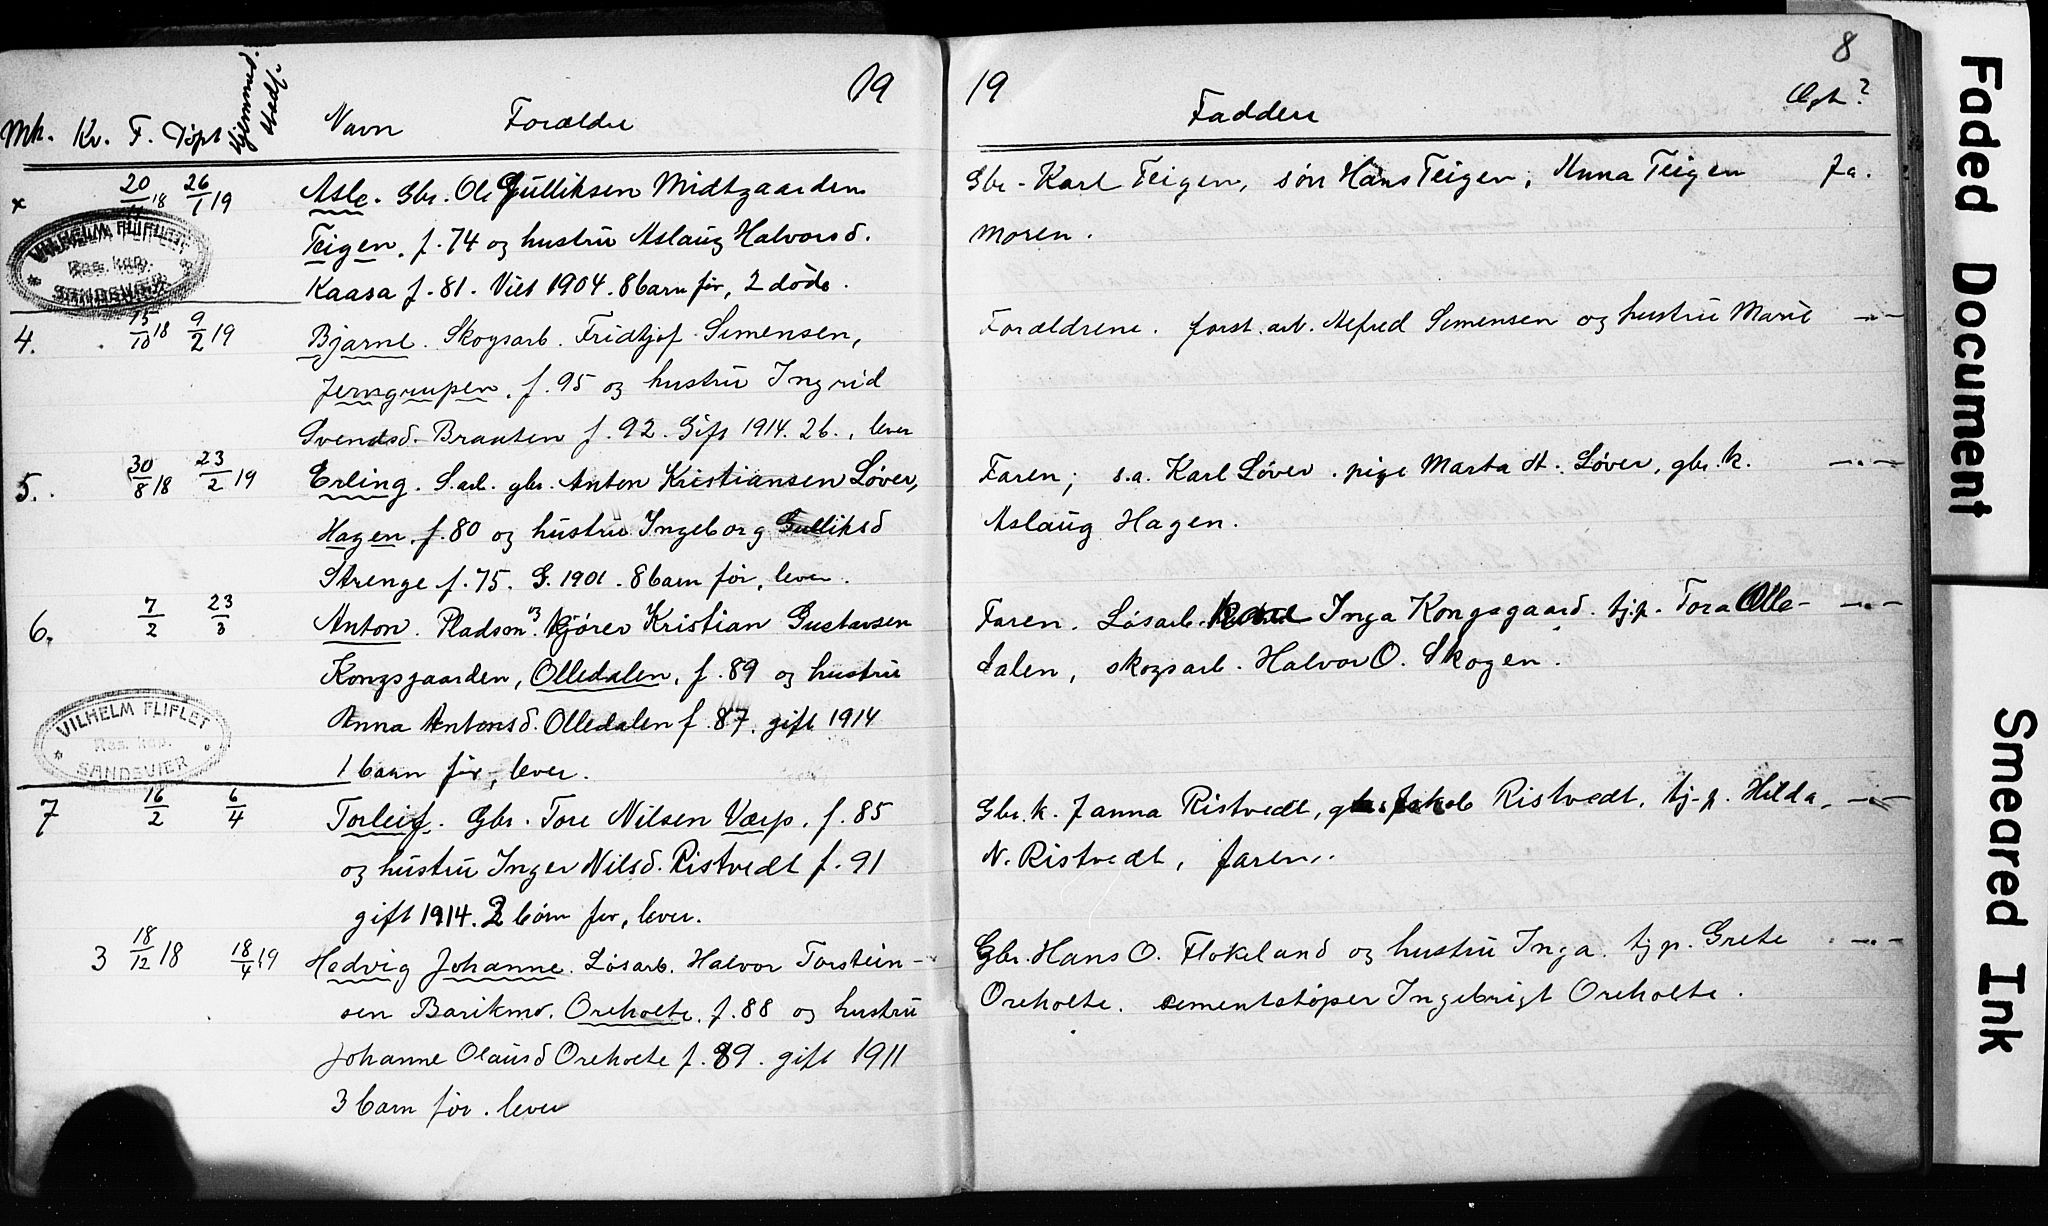 19
Mk. Kv. F. Døpt Hjemmed. Stadf. Navn Forældre
x 20/11 18 26/1 19 Asle. Gbr. Ole Gulliksen Midtgaarden
Teigen. f. 74 og hustru Aslaug Halvorsd.
Kaasa f. 81. Viet 1904. 8 barn før, 2 døde.
VILHELM FLIFLET
Res. kap.
SANDSVÆR
4. 15/10 18 9/2 19 Bjarne. Skogsarb. Fridtjof Simensen,
Jernsgrupen. f. 95 og hustru Ingrid
Svendsd. Brauten f. 92. Gift 1914. 2 b., lever
5. 30/8 18 23/2 19 Erling. S. arb. gbr. Anton Kristiansen Løver,
Hagen. f. 80 og hustru Ingeborg Gulliksd
Strenge f. 75. G. 1901. 8 barn før, lever.
6. 7/2 23/3 Anton. Pladsm. Kjører Kristian Gustavsen
Kongsgaarden, Olledalen, f. 89 og hustru
Anna Antonsd. Olledalen f. 87. gift 1914
1 barn før, lever.
VILHELM FLIFLET
Res. kap.
SANDSVÆR
7 16/2 6/4 Torleif. Gbr. Tore Nilsen Værp. f. 85
og hustru Inger Nilsd. Ristvedt f. 91
gift 1914. 2 børn før, lever.
3 18/12 18 18/4 19 Hedvig Johanne. Løsarb. Halvor Torstein-
sen Barikmo. Oreholte. f. 88 og hustru
Johanne Olausd Oreholte f. 89. gift 1911
3 barn før. lever
8
19
Faddere Ægt?
Gbr. Karl Teigen, søn Hans Teigen, Anna Teigen Ja.
Moren.
Forældrene. forst. arb. Alfred Simensen og hustru Marie —"—
Faren; s.a. Karl Løver. pige Marta A. Løver, gbr. k. —"—
Aslaug Hagen.
Faren. Løsarb. Inga Kongsgaard. tj.p. Tora Olle- —"—
dalen, skogsarb. Halvor O. Skogen.
Gbr. k. Janna Ristvedt, gbr. Jakob Ristvedt, tj.p. Hilda —"—
N. Ristvedt, faren.
Gbr. Hans O. Flokeland og hustru Inga. tj.p. Grete —"—
Oreholte. sementstøper Ingebrigt Oreholte.
Faded Document
Smeared Ink